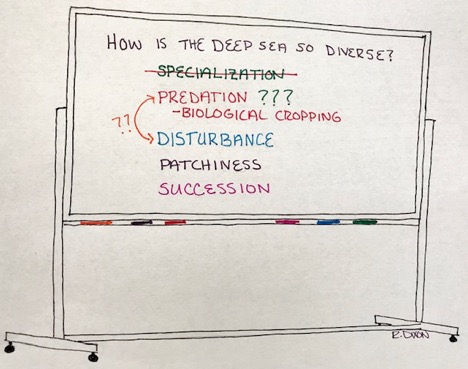 HOW IS THE DEEP SEA SO DIVERSE?
SPECIALIZATION
PREDATION ???
-BIOLOGICAL CROPPING
??
DISTURBANCE
PATCHINESS
SUCCESSION
R.DIXON